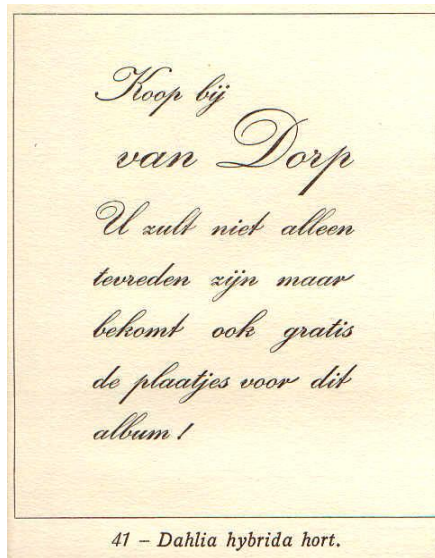 Koop bij
van Dorp
U zult niet alleen
tevreden zijn maar
bekomt ook gratis
de plaatjes voor dit
album !
41 – Dahlia hybrida hort.